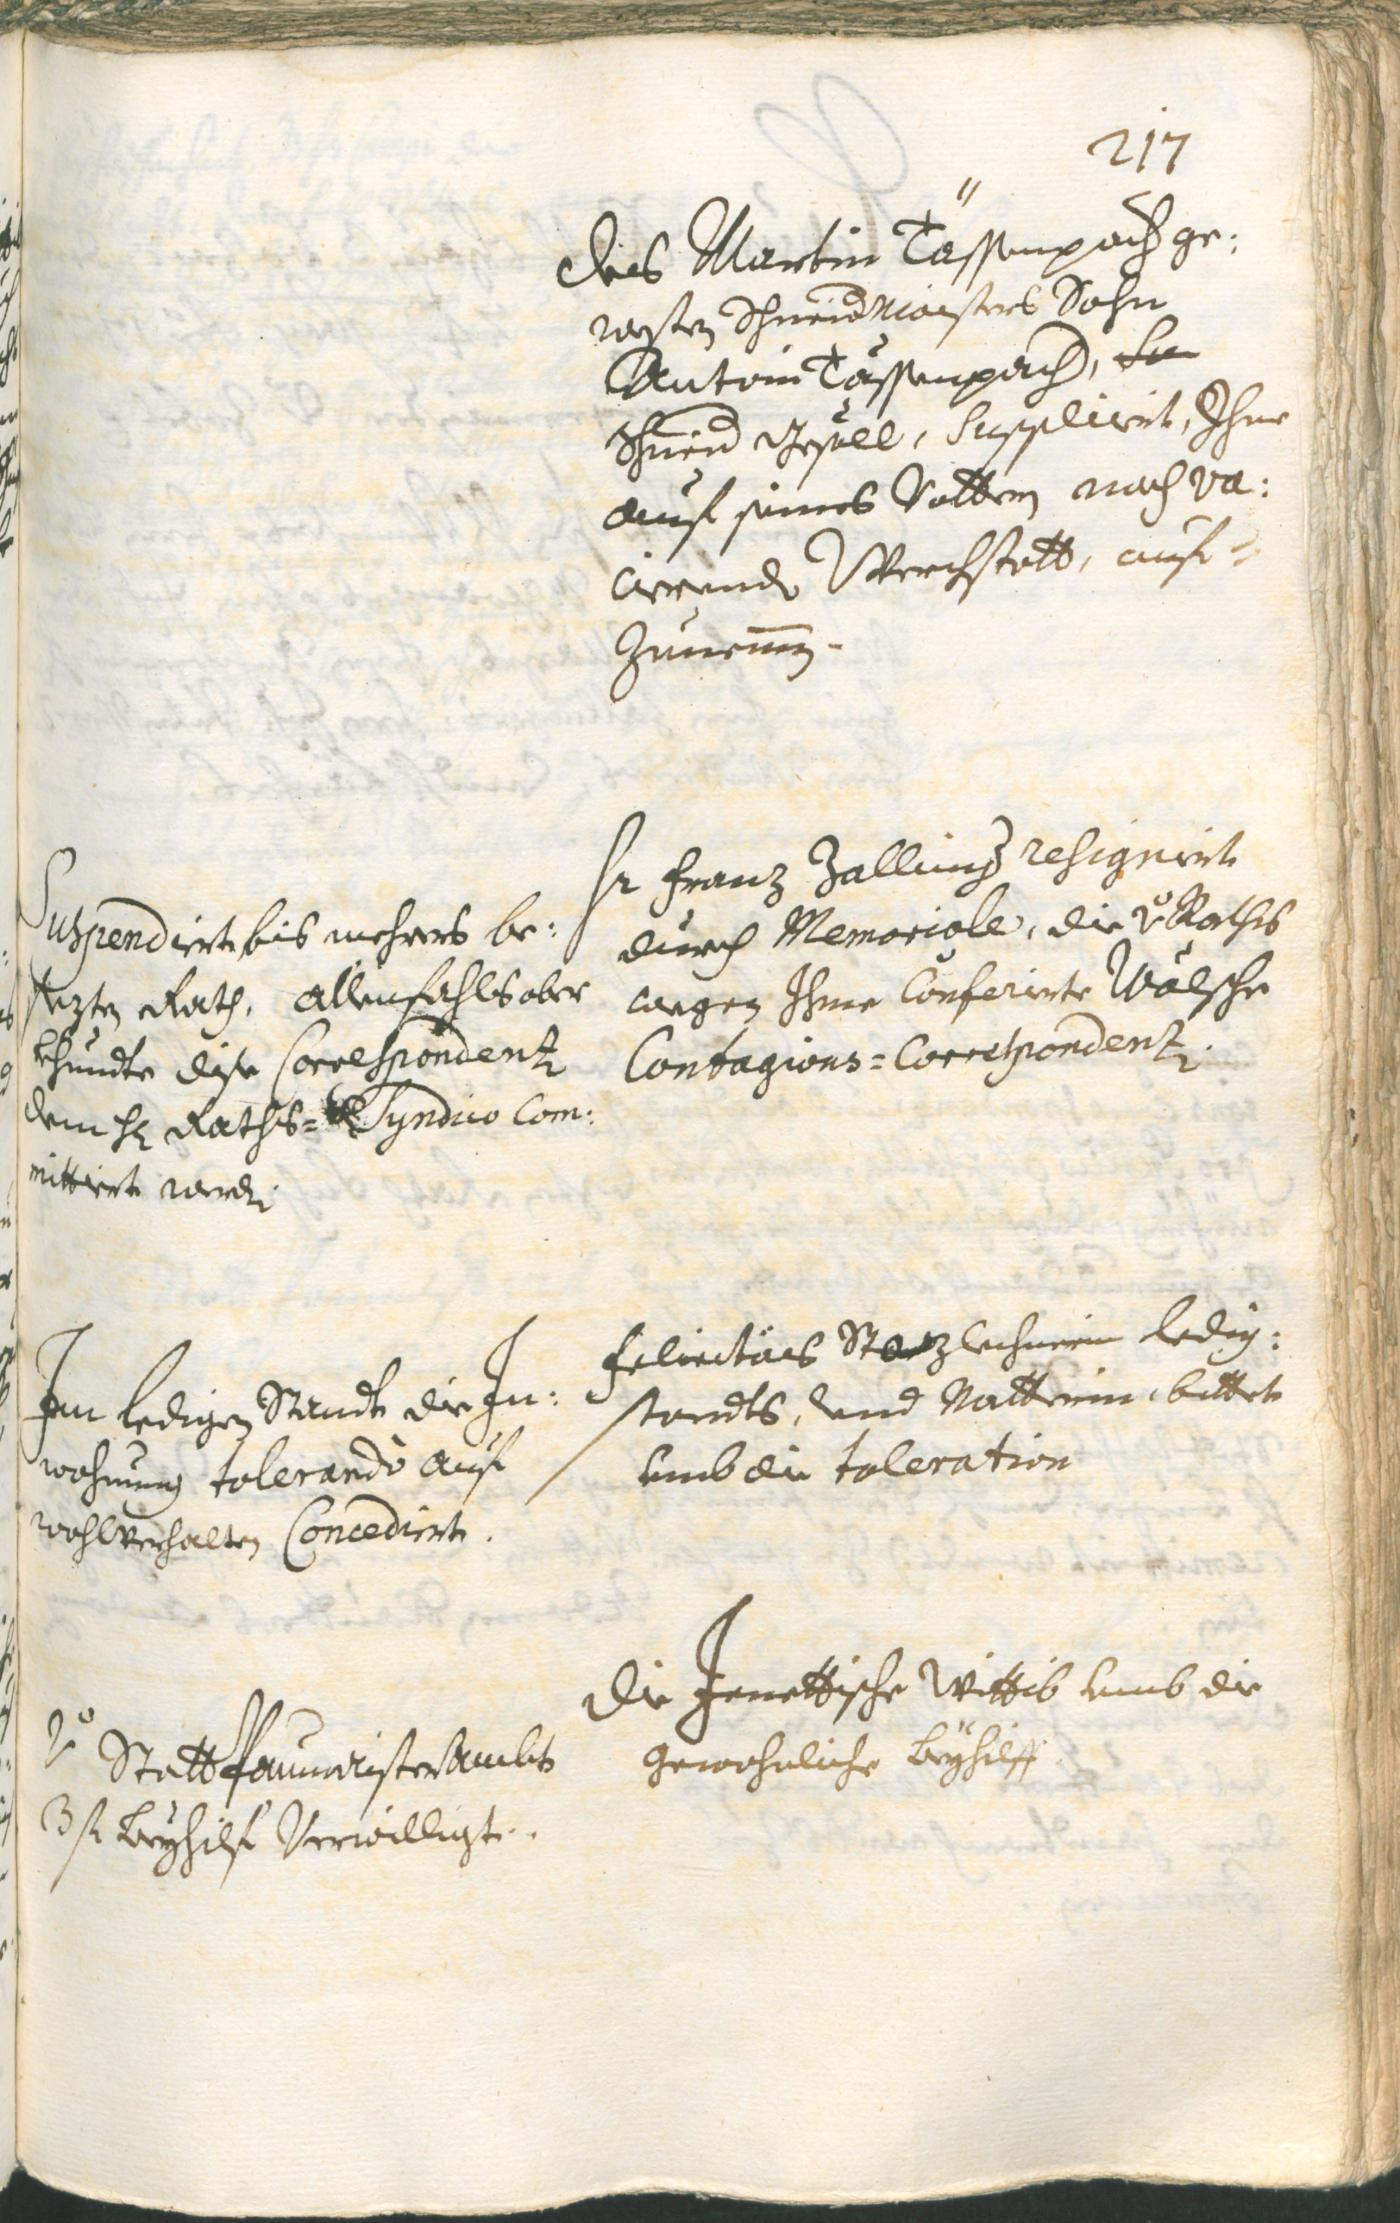 217
Des Martin Tässenpach ge:
westen Schneidmaisters Sohn
Antoni Tässenpach,
Schneid Gesöll, Supplicirt, Ihme
auf seines Vattern nach va:
cierende Werchstatt, auf=
zunemen.
Suspendiert bis mehrers be:
sezten Rath, Allenfahls aber
khundte dise Correspondenz
dem hr Raths= Syndico Com:
mittiert werden.
Hr Franz Zallinger resigniert
durch Memoriale, die vo Raths
wegen Ihme Conferirte Wälsche
Contagions=Correspondenz.
Im ledigen Standt die In:
wohnung tolerando auf
wohlverhalten Concediert.
Felicitas Stozlechnerin ledig:
standts, und Natterin, bittet
umb die toleration
Vo Statt Paumaisterambts
3 f Beyhilf Verwilligt.
Die Jenettische Wittib umb die
gewohnliche Beyhilff